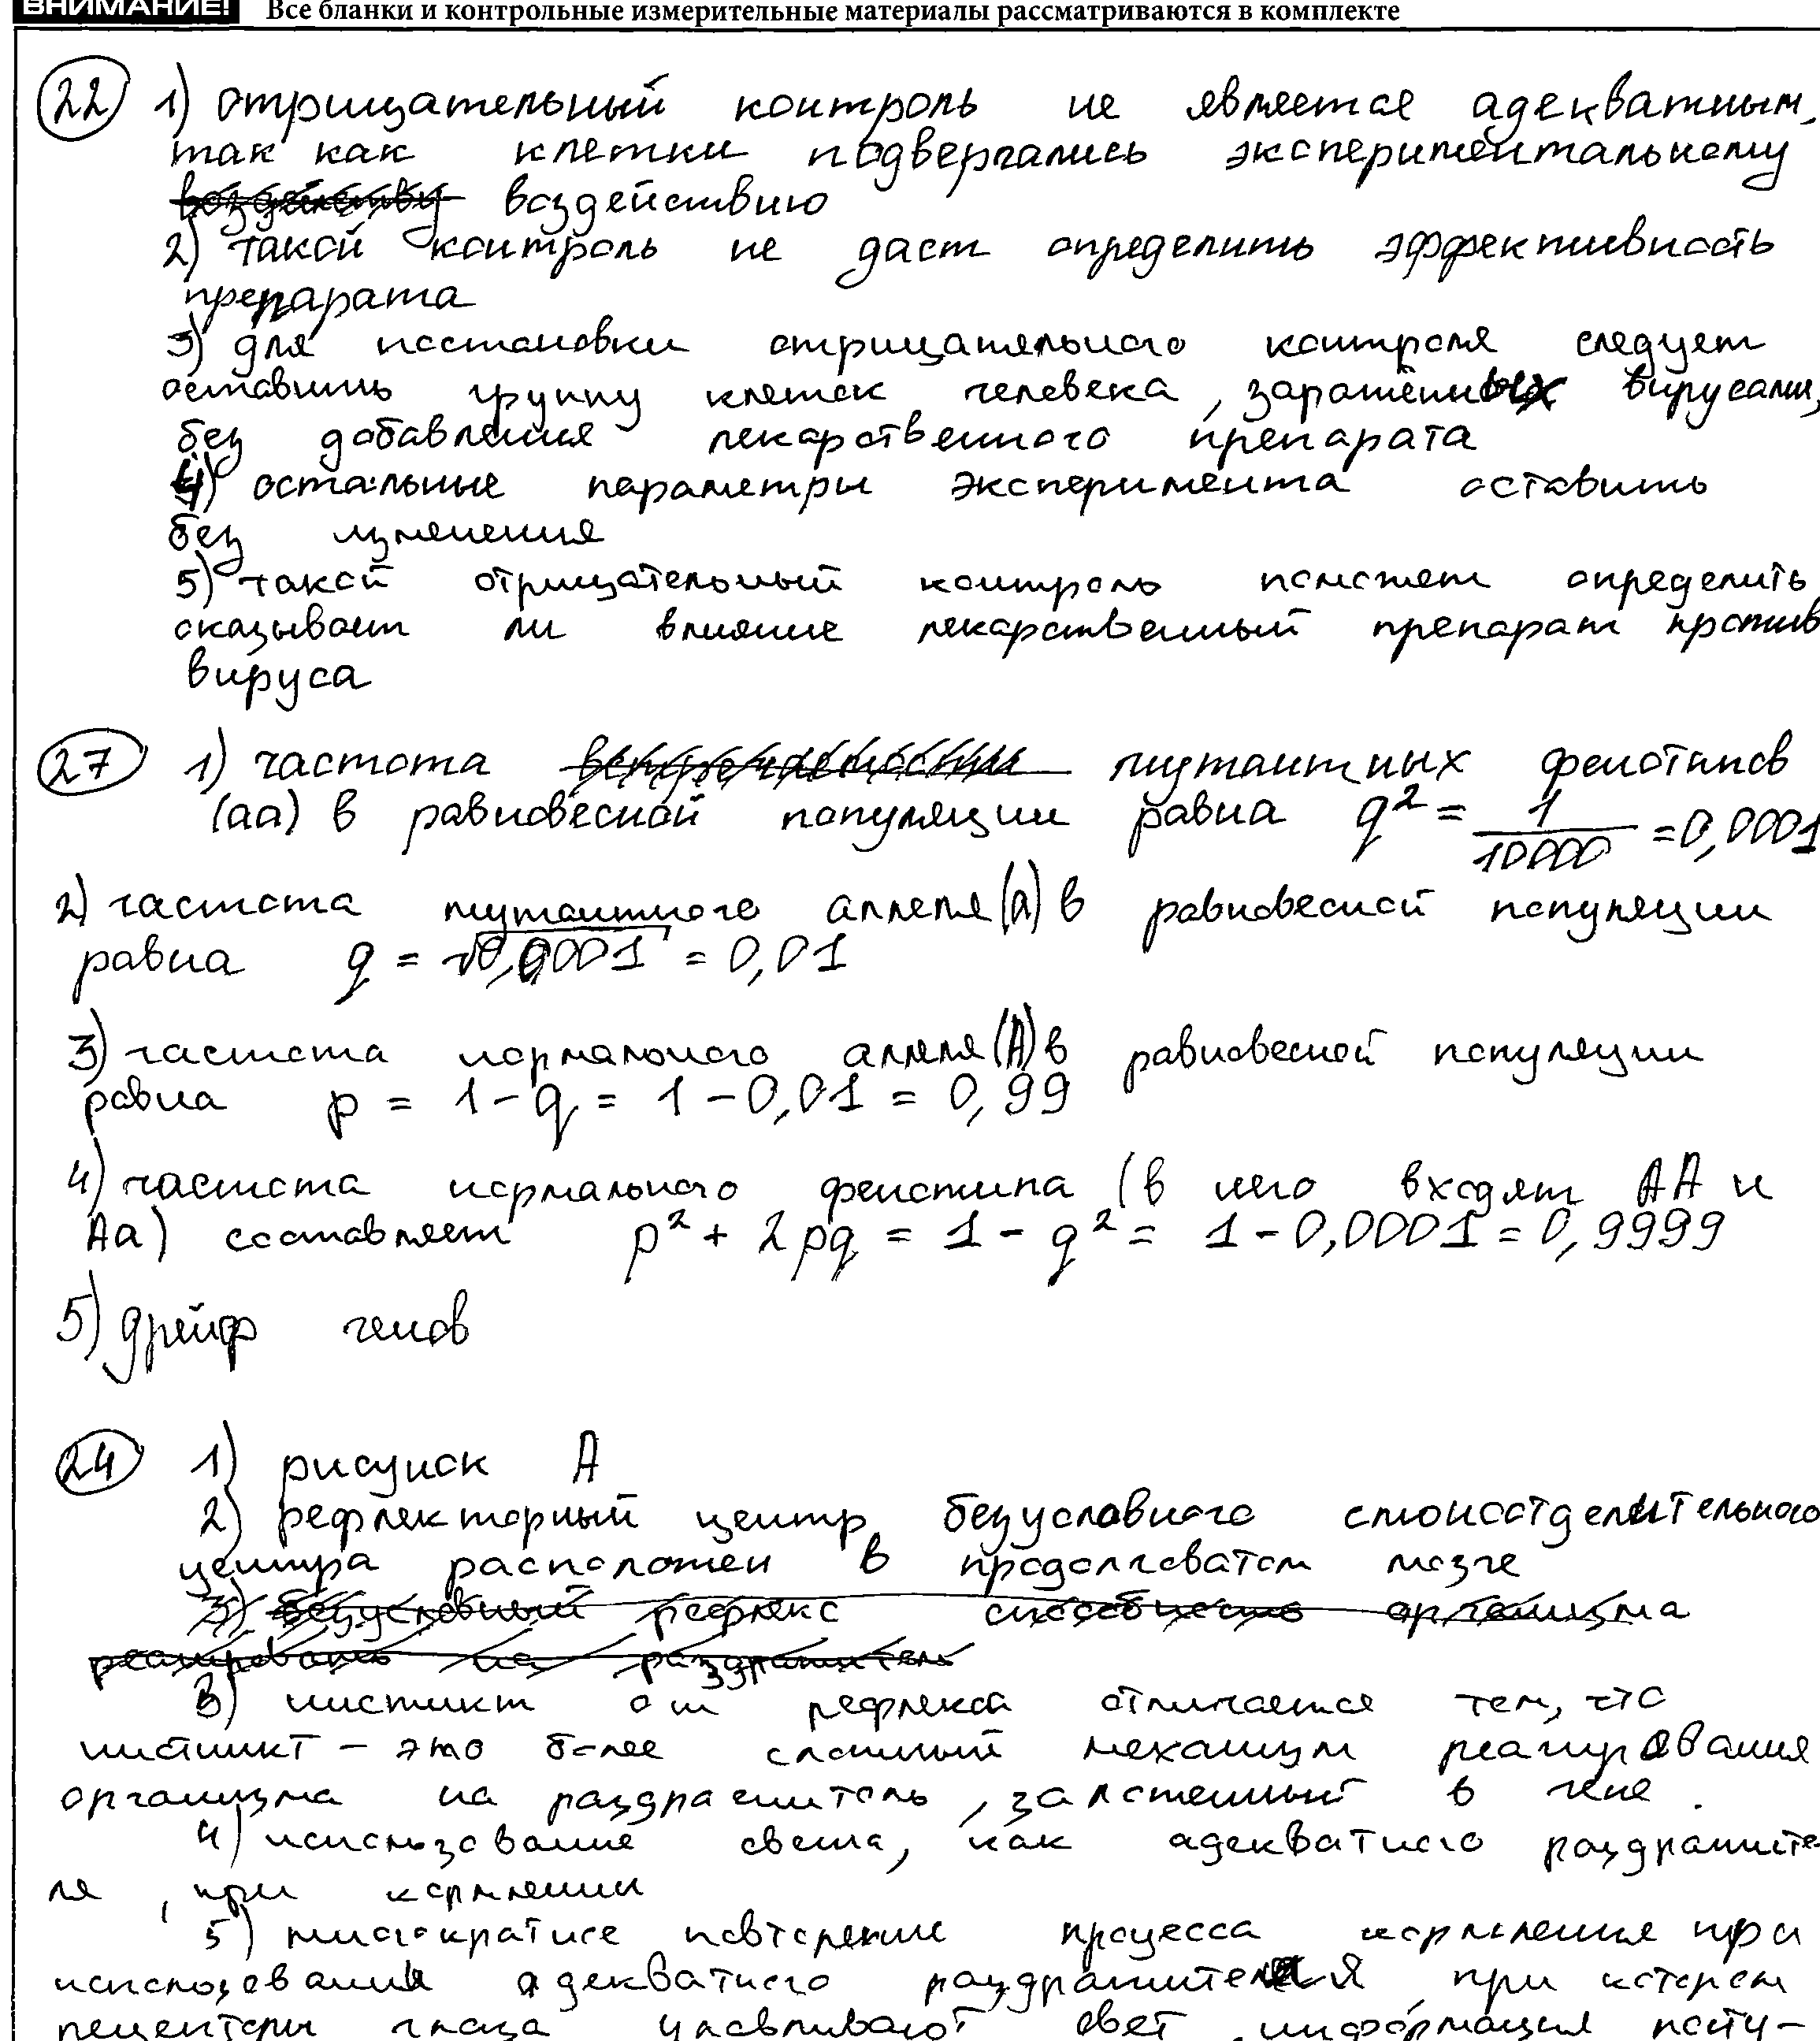 ВНИМАНИЕ! Все бланки и контрольные измерительные материалы рассматриваются в комплекте
22 1) отрицательный контроль не является адекватным,
так как клетки подвергались экспериментальному
воздейству воздействию
2) такой контроль не даст определить эффективность
препарата
3) для постановки отрицательного контроля следует
оставить группу клеток человека, заражённых вирусами,
без добавления лекарственного препарата
4) остальные параметры эксперимента оставить
без изменения
5) такой отрицательный контроль поможет определить
оказывает ли влияние лекарственный препарат против
вируса
27 1) частота встречаемости мутантных фенотипов
(аа) в равновесной популяции равна q² = 1/10000 = 0,0001
2) частота мутантного аллеля (а) в равновесной популяции
равна q = √0,0001 = 0,01
3) частота нормального аллеля (А) в равновесной популяции
равна p = 1 - q = 1 - 0,01 = 0,99
4) частота нормального фенотипа (в него входят АА и
Аа) составляет p² + 2pq = 1 - q² = 1 - 0,0001 = 0,9999
5) дрейф генов
24 1) рисунок А
2) рефлекторный центр безусловного слюноотделительного
центра расположен в продолговатом мозге
3) безусловный рефлекс способность организма
реагировать на раздражитель
3) инстинкт от рефлекса отличается тем, что
инстинкт – это более сложный механизм реагирования
организма на раздражитель, заложенный в гене.
4) использование света, как адекватного раздражите-
ля, при кормлении
5) многократное повторение процесса кормления при
использовании адекватного раздражителя, при котором
рецепторы глаза улавливают свет, информация посту-